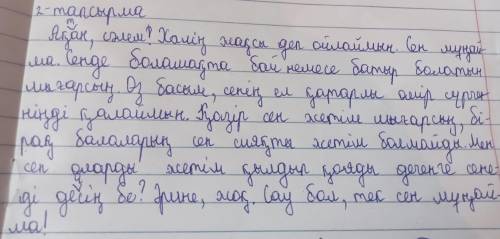 2-тапсырма
Ақан, сәлем! Халің жақсы деп ойлаймын. Сен мұңай-
ма. Сенде болашақта бай немесе батыр болатын
шығарсың. Өз басым, сенің ел қатарлы өмір сүрге-
ніңді қалаймын. Қазір сен жетім шығарсың, бі-
рақ балаларың сен сияқты жетім болмайды. Мен
сен оларды жетім қылдыр қояды дегенге сене-
ді дейсің бе? Әрине, жоқ. Сау бол, тек сен мұңай-
ма!